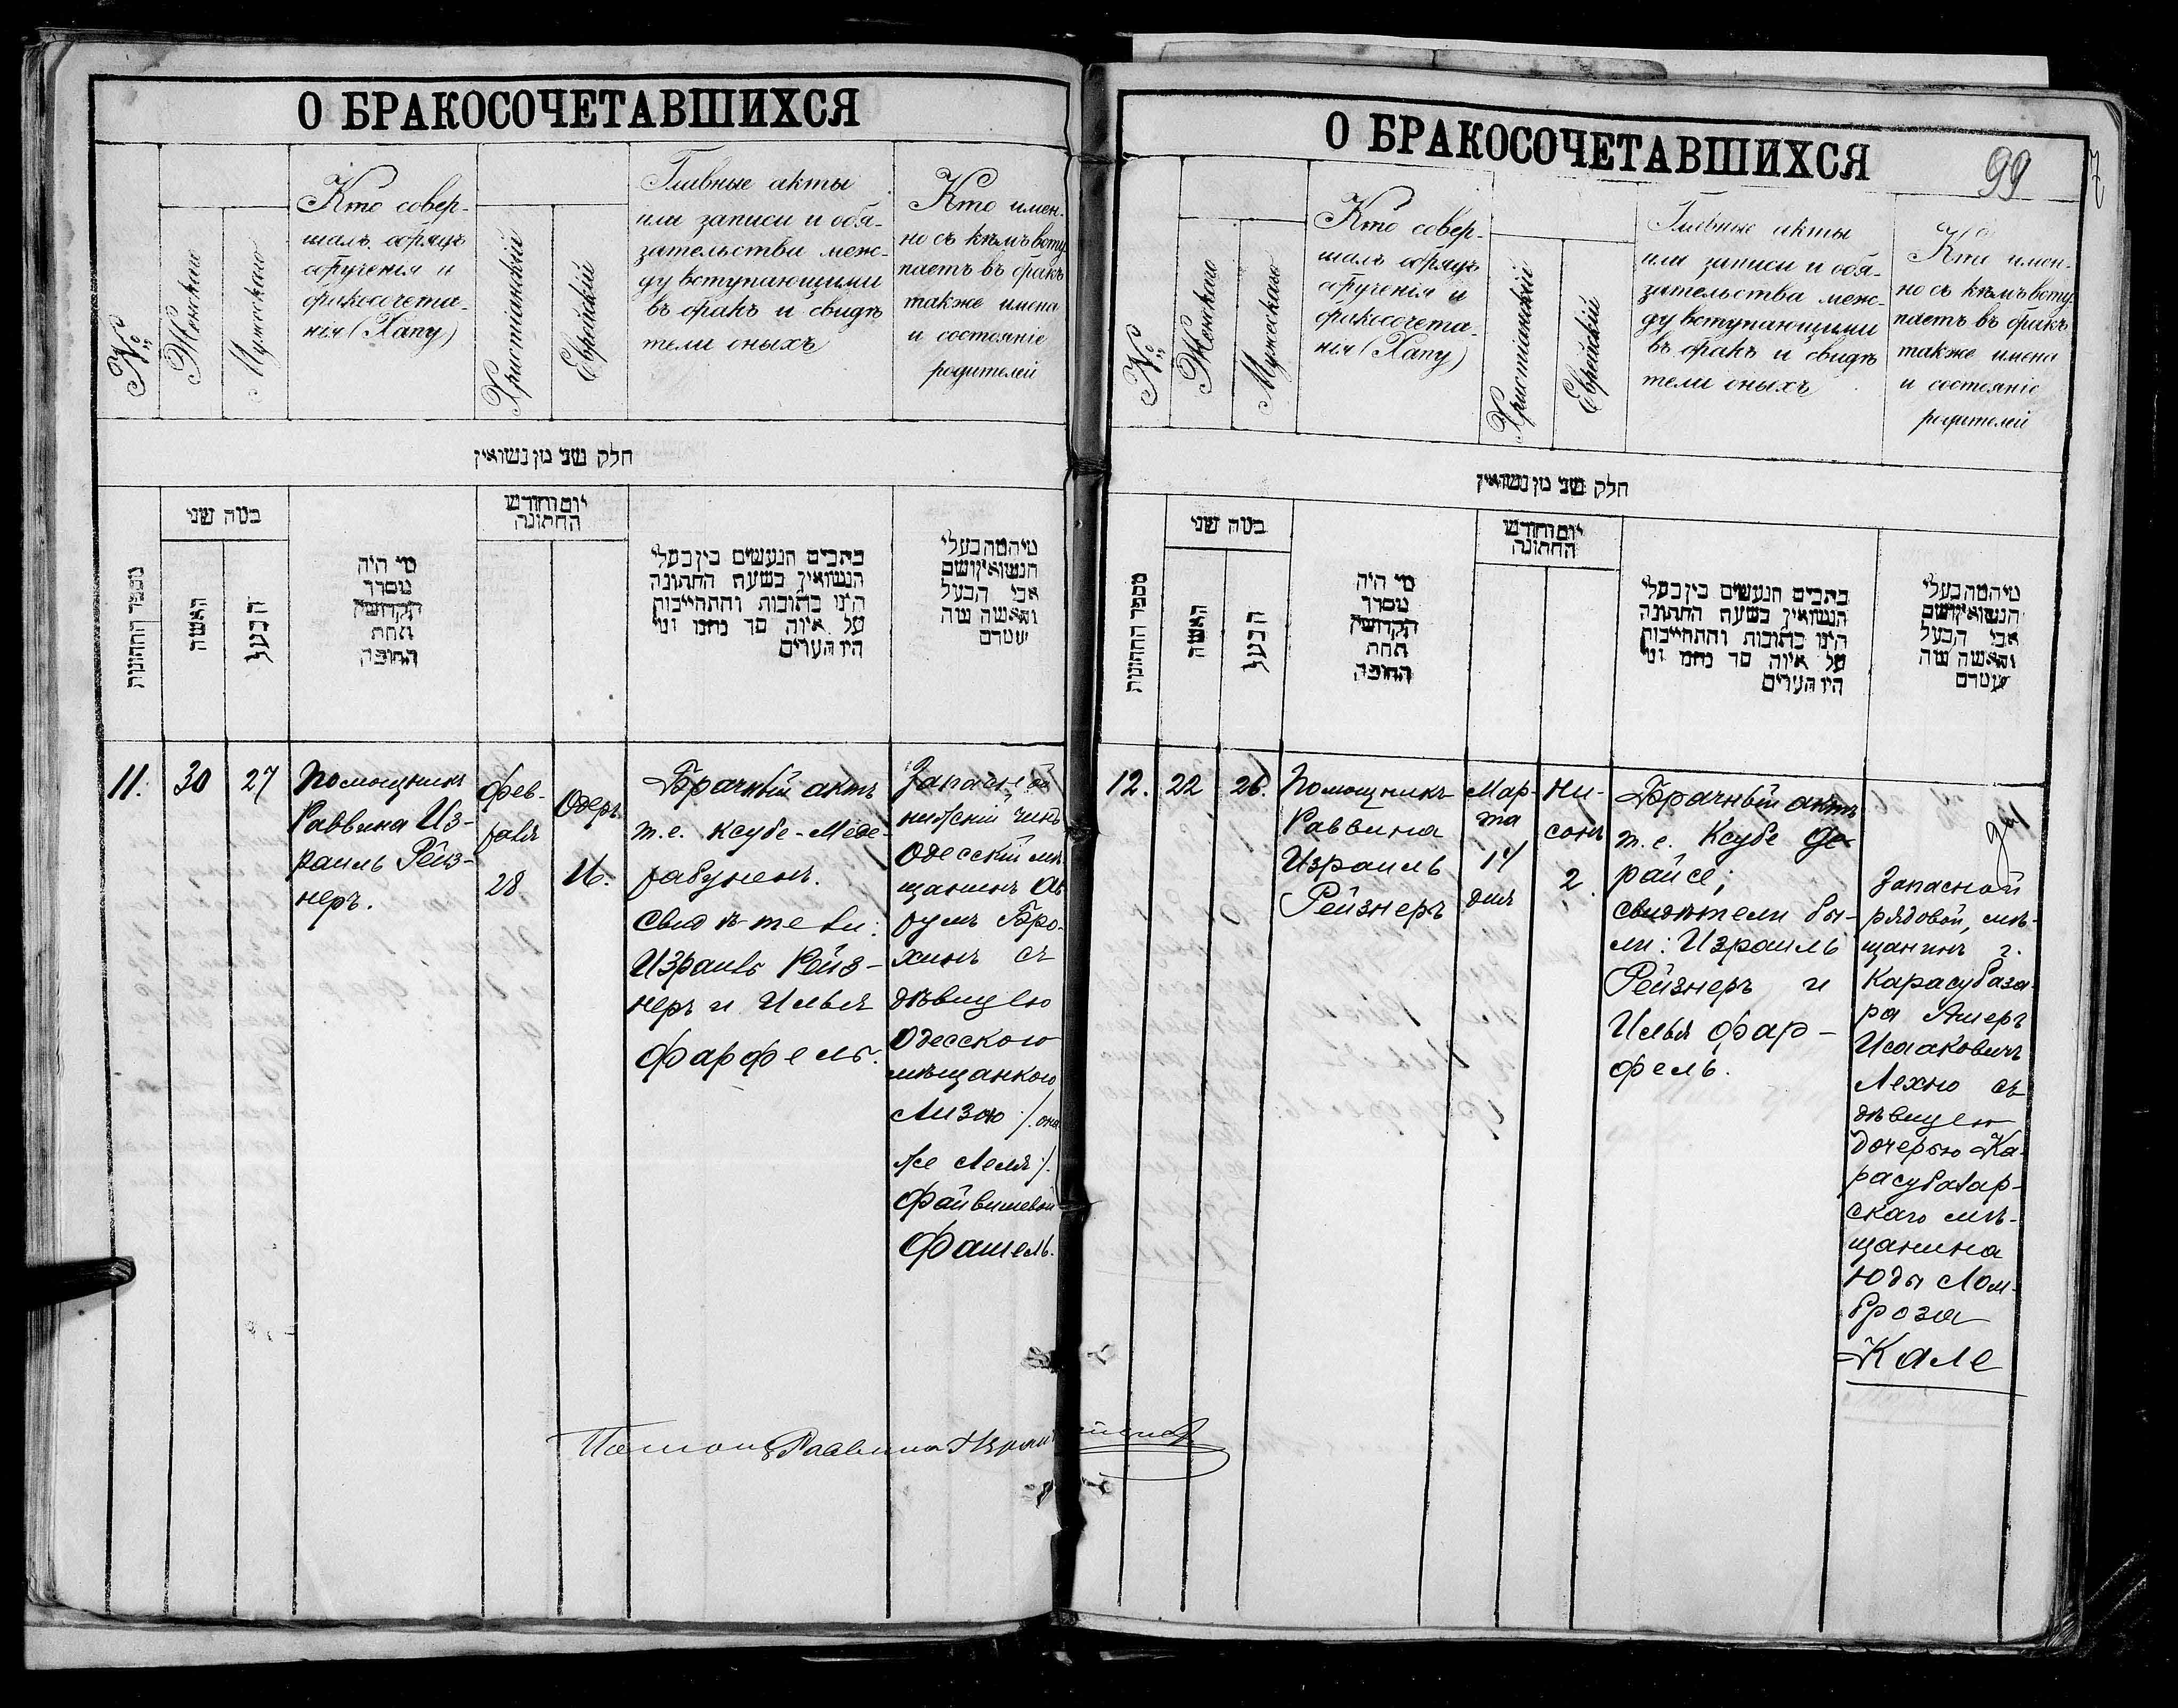 О БРАКОСОЧЕТАВШИХСЯ
№
Женскаго
Мужескаго
Кто совер-
шалъ обрядъ
обрученія и
бракосочета-
нія (Хапу)
Христіанскій
Еврейскій
Главные акты
или записи и обя-
зательства меж-
ду вступающими
въ бракъ и свидѣ
тели оныхъ
Кто имен-
но съ кѣмъ всту
паетъ въ бракъ
также имена
и состояніе
родителей
חלק שני מן נשואין
מספר החתונות
במה שני
האשה
הבעל
מי היה
מסדר
הקדושין
תחת
החופה
יום וחודש
החתונה
כתבים הנעשים בין בעלי
הנשואין בשעת החתונה
היינו כתובות והתחייבות
על איזה סך נחנו ומי
היו העדים
מי המה בעלי
הנשואין ושם
אבי הבעל
והאשה ומה
11.
30
27
Помощникъ
Раввина Из-
раиль Рейз-
неръ.
Фев-
раля
28
Одеръ
16.
Брачный актъ
т.е. Ксубе-Меде-
рабуненъ.
Свидѣтели:
Израиль Рейз-
неръ и Илья
Фарфель.
Запасной
нижній чинъ
Одесскій мѣ
щанинъ Ав
румъ Бро-
хинъ съ
дѣвицею
Одесскою
мѣщанкою
Лизою /. она
же Леля ./.
Файвишевой
Фашель.
Помощ Раввина Израиль Рейзнеръ
О БРАКОСОЧЕТАВШИХСЯ
99
№
Женскаго
Мужескаго
Кто совер-
шалъ обрядъ
обрученія и
бракосочета-
нія (Хапу)
Христіанскій
Еврейскій
Главные акты
или записи и обя-
зательства меж-
ду вступающими
въ бракъ и свидѣ
тели оныхъ
Кто имен-
но съ кѣмъ всту
паетъ въ бракъ
также имена
и состояніе
родителей
חלק שני מן נשואין
מספר החתונות
במה שני
האשה
הבעל
מי היה
מסדר
הקדושין
תחת
החופה
יום וחודש
החתונה
כתבים הנעשים בין בעלי
הנשואין בשעת החתונה
היינו כתובות והתחייבות
על איזה סך נחנו ומי
היו העדים
מי המה בעלי
הנשואין ושם
אבי הבעל
והאשה ומה
12.
22
26.
Помощникъ
Раввина
Израиль
Рейзнеръ
Мар-
та
14
дня
Ни-
сонъ
2.
Брачный актъ
т.е. Ксубе Де-
райсе;
свидѣтели бы-
ли: Израиль
Рейзнеръ и
Илья Фар-
фель.
да
Запасной
рядовой, мѣ-
щанинъ г.
Карасубаза-
ра Ашеръ
Исааковичъ
Лехно съ
дѣвицею
дочерью Ка-
расубазар-
скаго мѣ-
щанина
Юды Лом-
броза
Кале